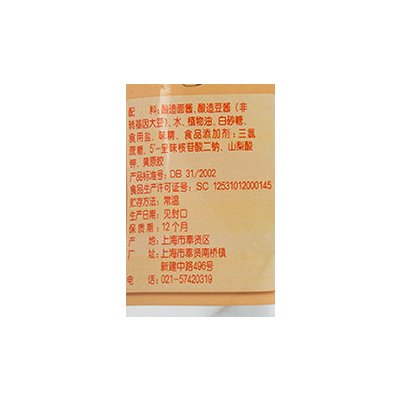 配 料:酿造面酱、酿造豆酱(非
转基因大豆)、水、植物油、白砂糖、
食用盐、味精、食品添加剂:三氯
蔗糖、5'-呈味核苷酸二钠、山梨酸
钾、黄原胶
产品标准号:DB 31/2002
食品生产许可证号:SC 12531012000145
贮存方法:常温
生产日期:见封口
保质期:12个月
产 地:上海市奉贤区
厂 址:上海市奉贤南桥镇
新建中路496号
电 话:021-57420319